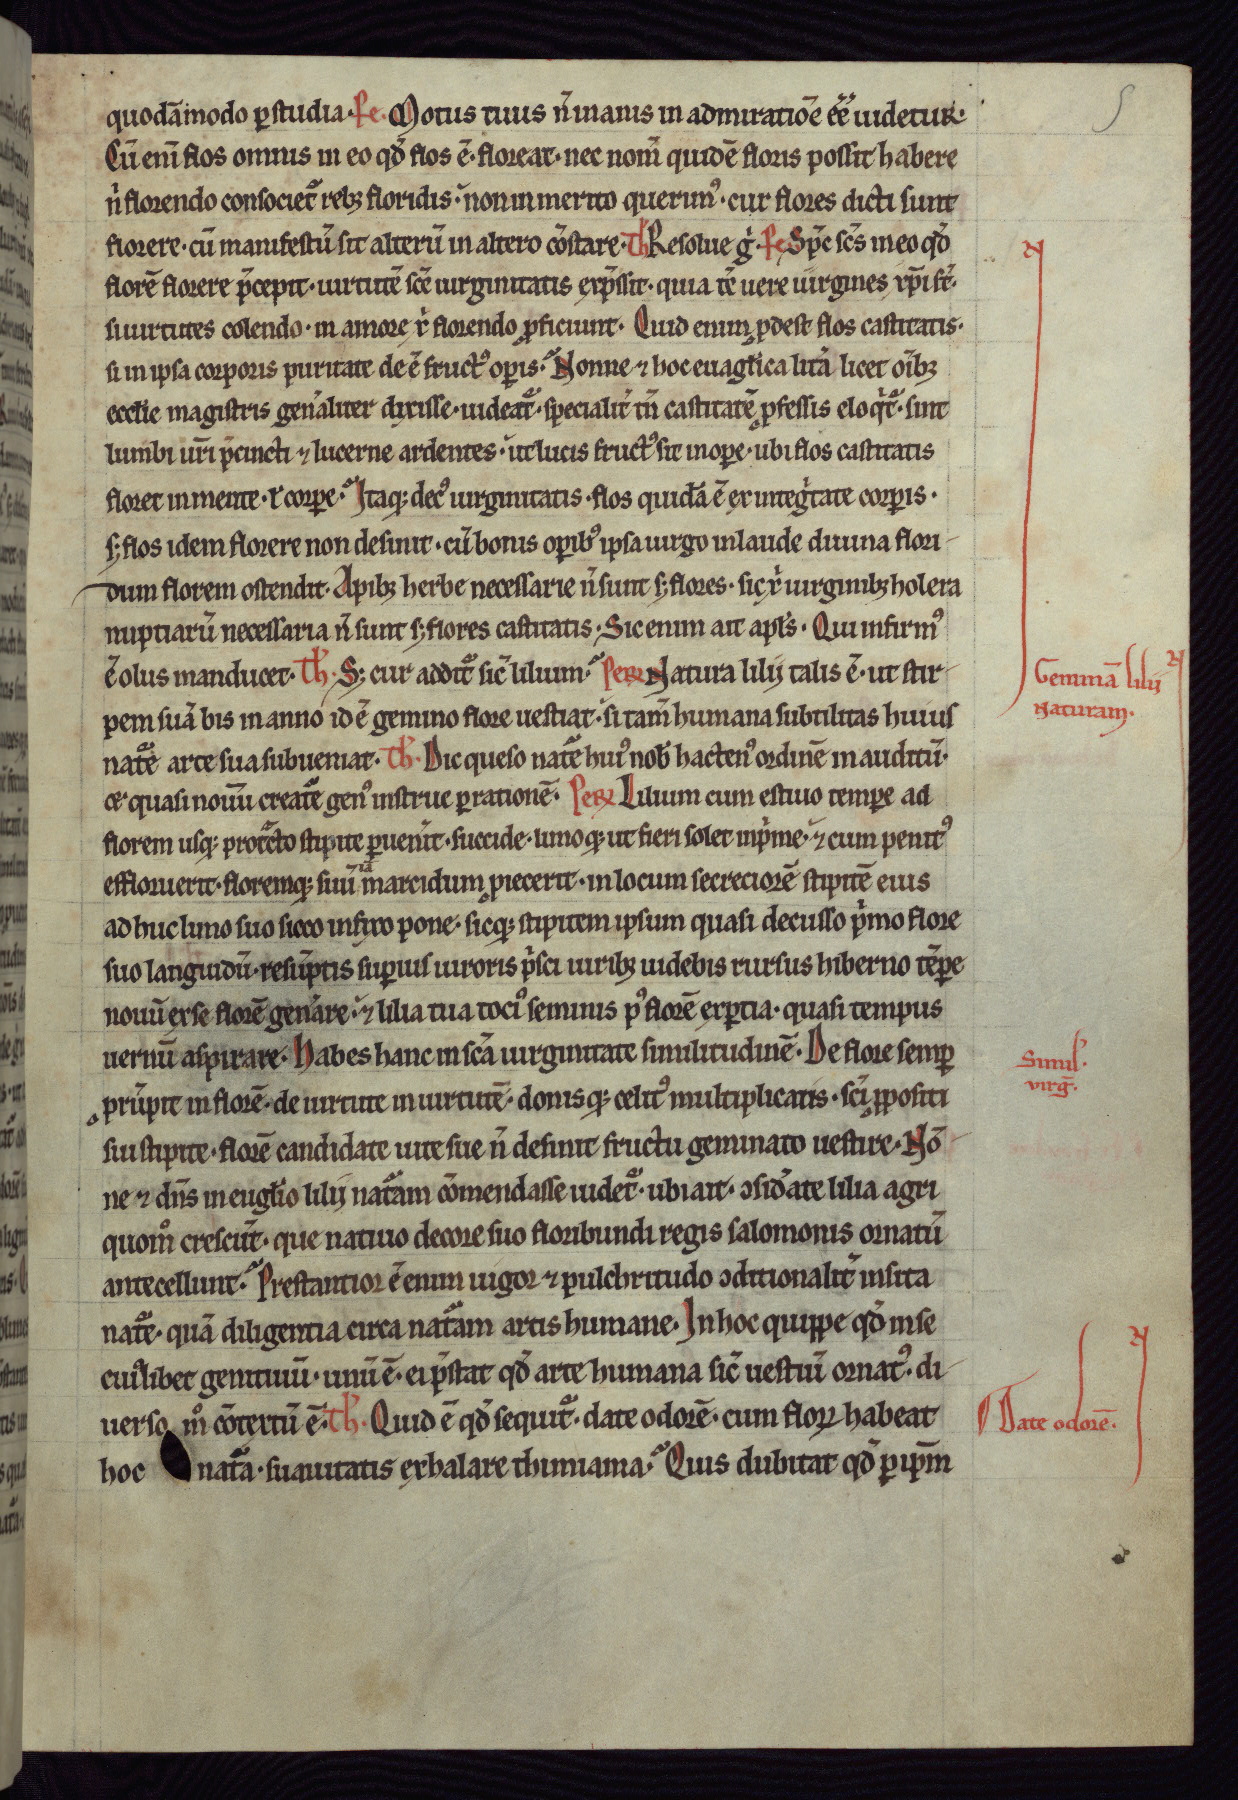 quodāmodo ꝑ studia· Pe· Motus tuus n̄ inanis in admiratiōe ēē uidetur·
Cū eni̅ flos omnis in eo qđ flos ē· floreat· nec nom̄ quidē floris possit habere
n̄ florendo consociet᷑ rebꝫ floridis· non inmerito querim᷒· cur flores dicti sunt
florere· cū manifestū sit alterū in altero cōstare· Th Resolue g̊· Pe Sp̄c sc̄s in eo qđ
florē florere p̄cepit· uirtutē sc̄e uirginitatis exp̄ssit· quia tē uere uirgines xp̄i st̄·
si uirtutes colendo· in amore xp̄i florendo ꝓficiunt· Quid enim ꝓdest flos castitatis·
si in ipsa corporis puritate deē fruct᷒ oꝑis· Nonne ⁊ hoc euāglica litā licet oīꝫ
eccl̄ie magistris gen̄aliter dixisse· uideat᷑· specialit̄ tn̄ castitatē ꝓfessis eloq̄t᷑· sint
lumbi ur̄i p̄cincti ⁊ lucerne ardentes· ut lucis fruct᷒ sit in oꝑe· ubi flos castitatis
floret in mente· ⁊ corꝑe· Itaqꝫ dec᷒ uirginitatis· flos quidā ē ex integͥtate corꝑis·
sꝫ flos idem florere non desinit· cū bonis oꝑibꝫ ipsa uirgo in laude diuina flori-
dum florem ostendit· Apibꝫ herbe necessarie n̄ sunt sꝫ flores· sic ⁊ uirginibꝫ holera
nuptiarū necessaria n̄ sunt sꝫ flores castitatis· Sic enim ait apl̄s· Qui infirm᷒
ē olus manducet· Th· Sꝫ cur addit᷑ sic̄ lilium· Peꝝ Natura lilij talis ē· ut stir-
pem suā bis in anno id ē gemino flore uestiat· si tam̄ humana subtilitas huius
nat᷑e arte sua subueniat· Th· Dic queso nat᷑e hui᷒ nob̄ hacten᷒ ordinē inauditū·
⁊ quasi nouū creat᷑e gen᷒ instrue ꝑ rationē· Peꝝ Lilium cum estiuo temꝑe ad
florem usqꝫ protͣcto stipite ꝑuen̄it· succide· limoqꝫ ut fieri solet inpͥme· ⁊ cum penit᷒
effloruerit· floremqꝫ suū iā marcidum ꝓiecerit· in locum secreciorē stipitē eius
adhuc limo suo sicco infixo pone· sicqꝫ stipitem ipsum quasi decusso pͥmo flore
suo languidū· resūptis suꝑius uiroris pͥsci uiribꝫ uidebis rursus hiberno tēꝑe
nouū ex se florē gen̄are· ⁊ lilia tua toci᷒ seminis p᷒ florē exꝑtia· quasi tempus
uernū aspirare· Habes hanc in sc̄a uirginitate similitudinē· De flore semꝑ
ꝓrūpit in florē· de uirtute in uirtutē· donisqꝫ celit᷒ multiplicatis· sc̄i ꝓpositi
sui stipite· florē candidate uite sue n̄ desinit fructu geminato uestire· Nō-
ne ⁊ dn̄s in euglīo lilij nat᷑am cōmendasse uidet᷑· ubi ait· ↄsid̄ate lilia agri
quom̊ crescūt· que natiuo decore suo floribundi regis salomonis ornatū
antecellunt· Prestantior ē enim uigor ⁊ pulchritudo ↄditionalit̄ insita
nat᷑e· quā diligentia circa nat᷑am artis humane· In hoc quippe qđ in se
cui᷒libet genitiuū· unū ē· ei p̄stat qđ arte humana sic̄ uestiū ornat᷒· di-
uerso m̊ cōtextū ē· Th· Quid ē qđ sequit᷑· date odorē· cum floꝝ habeat
hoc nat᷑a· suauitatis exhalare thimiama· Quis dubitat qđ ꝑ ip̄m
Gemmā lilij
naturam·
Simil᷒·
virḡ·
Date odorē·